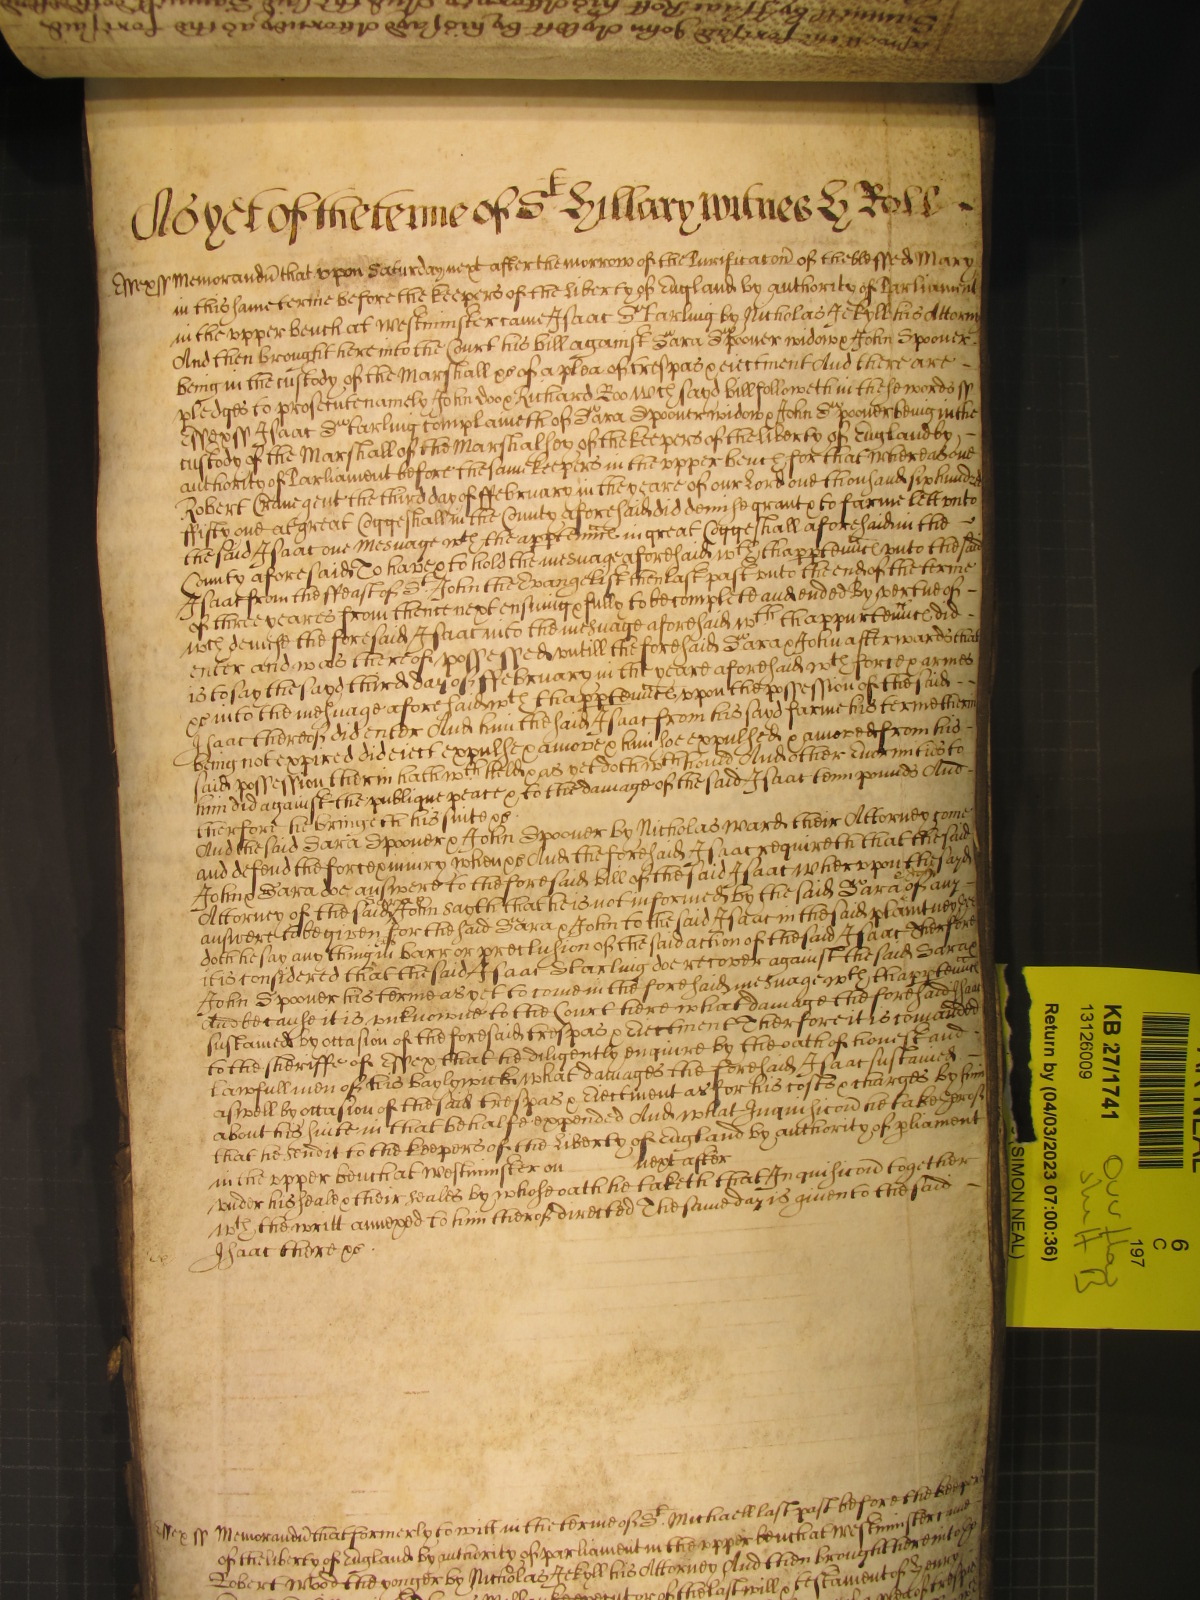 As yet of the terme of St Hillary witnes H Roll
Essex ss Memorandũ that upon Saturday next after the morrow of the Purificacoñ of the blessed Mary
in this same terme before the keepers of the Liberty of England by authority of Parliament
in the upper bench at Westminster came Isaac Starling by Nicholas Jekyll his Attorn
And then brought here into the Court his bill against Sara Spooner widow & John Spooner
being in the custody of the Marshall &c of a plea of trespas & eiectment And there are
pledges to prosecute namely John Doo & Richard Roo Wch sayd bill followeth in these words ss
Essex ss Isaac Starling complaineth of Sara Spooner widow & John Spooner being in the
custody of the Marshall of the Marshalsey of the keepers of the liberty of England by
authority of Parliament before the same keepers in the upper bench for that Whereas one
Robert Crane gent the third day of ffebruary in the yeare of our Lord one thousand six hundred
ffifty one at great Coggeshall in the County aforesaid did demise grant & to farme lett unto
the said Isaac one Mesuage wth the apptennc̃ in great Coggeshall aforesaid in the
County aforesaid To have & to hold the mesuage aforesaid wth thapptennc̃ unto the said
Isaac from the ffeast of St John the Evangelist then last past unto the end of the terme
of three yeares from thence next ensuing & fully to be complete and ended By vertue of
wch demise the foresaid Isaac into the mesuage aforesaid wth thappurtennc̃ did
enter and was thereof possessed untill the foresaid Sara & John afterwards that
is to say the sayd third day of ffebruary in the yeare aforesaid wth force & armes
&c into the mesuage aforesaid wth thapptennc̃ upon the possession of the said
Isaac thereof did enter And him the said Isaac from his sayd farme his terme therein
being not expired did eiect expulse & amove & him soe expulsed & amoved from his
said possession therin hath wthheld & as yet doth wthhould And other Enormities to
him did against the publique peace & to the damage of the said Isaac tenn pounds And
therfore he bringeth his suite &c
And the said Sara Spooner & John Spooner by Nicholas Ward their Attorney come
and defend the force & iniury when &c And the foresaid Isaac requireth that the said
John & Sara doe answere to the foresaid bill of the said Isaac Wherupon the sayd
Attorney of the said John sayth that he is not informed by the said Sara of any
answere to be given for the said Sara & John to the said Isaac in the said plaint ney
doth he say any thing in barr or preclusion of the said action of the said Isaac Therfore
it is considered that the said Isaac Starling doe recover against the said Sara &
John Spooner his terme as yet to come in the foresaid mesuage wth thapptennc̃
And because it is unknowne to the Court here what damage the foresaid Isaac
sustained by occasion of the foresaid trespas & Eiectment Therfore it is comanded
to the sheriffe of Essex that he diligently enquire by the oath of honest and
Lawfull men of his baylywick what damages the foresaid Isaac sustained
aswell by occasion of the said trespas & Eiectment as for his costs & charges by him
about his suite in that behalfe expended And what Inquisicoñ he
that he send it to the keepers of the Liberty of England by authority of pliament
in the upper bench at Westminster on next after
under his seale & their seales by whose oath he taketh that Inquisicoñ together
wth the writt annexed to him therof directed The same day is given to the said
Isaac there &c
Essex ss Memorandũ that formerly to witt in the terme of St Michaell last past before the keepers
of the liberty of England by authority of parliament in the upper bench at Westminster came
Robert Wood the yonger by Nicholas Jekyll his Attorney And then brought here into
of the last will & testament of Henry
KB 27/1741
13126009
Return by (04/03/2023 07:00:36)
(SIMON NEAL)
6
C
197